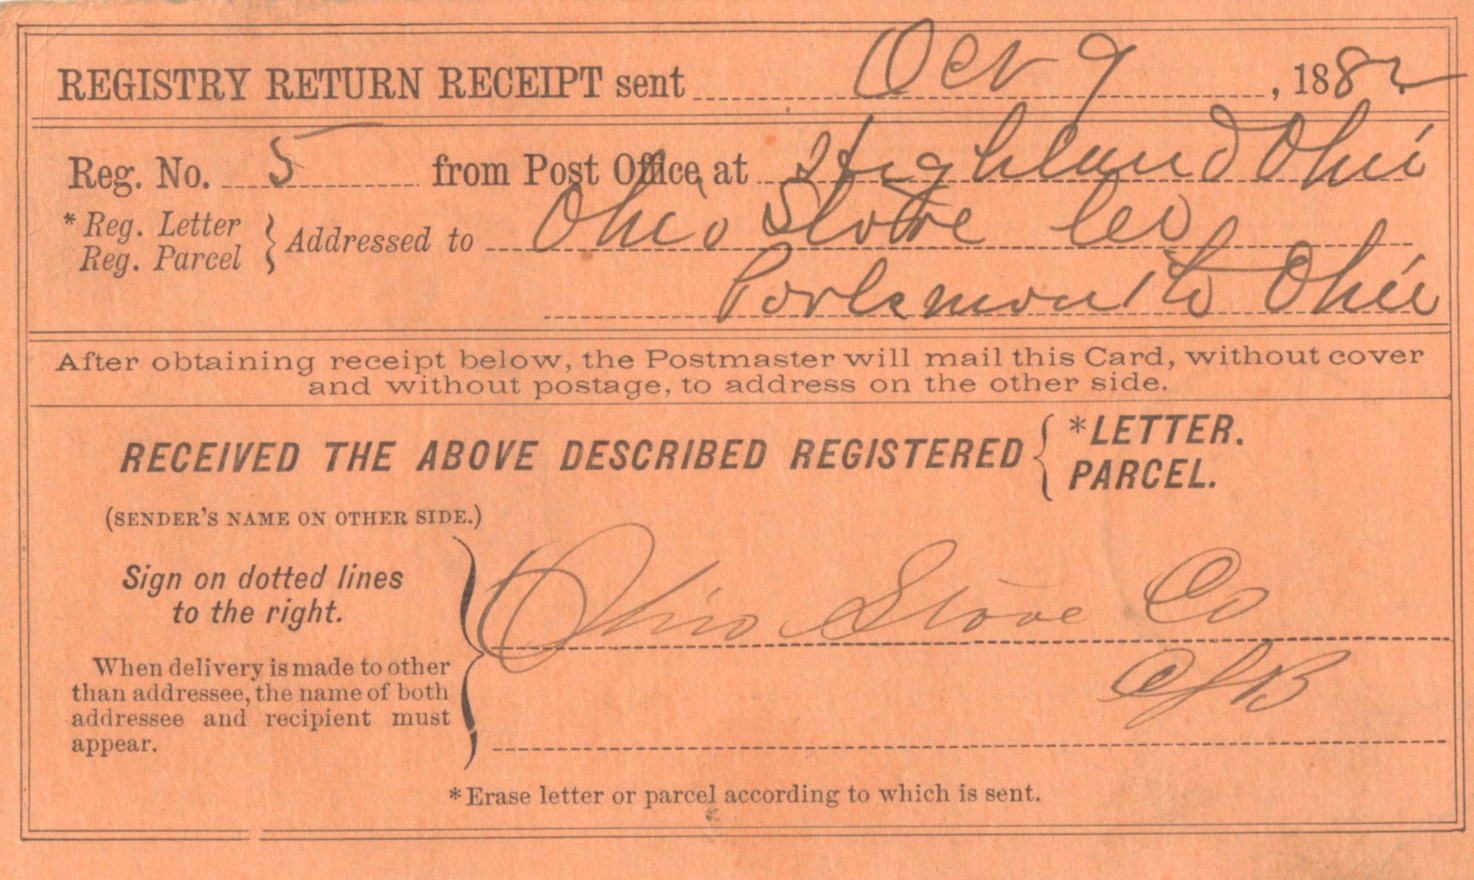 REGISTRY RETURN RECEIPT sent Oct 9, 1882
Reg. No. 5 from Post Office, at Highland Ohio
*Reg. Letter
Reg. Parcel } Addressed to Ohio Stove Co
Portsmouth Ohio
After obtaining receipt below, the Postmaster will mail this Card, without cover
and without postage, to address on the other side.
RECEIVED THE ABOVE DESCRIBED REGISTERED { *LETTER.
PARCEL.
(SENDER'S NAME ON OTHER SIDE.)
Sign on dotted lines
to the right.
Ohio Stove Co
When delivery is made to other
than addressee, the name of both
addressee and recipient must
appear.
*Erase letter or parcel according to which is sent.